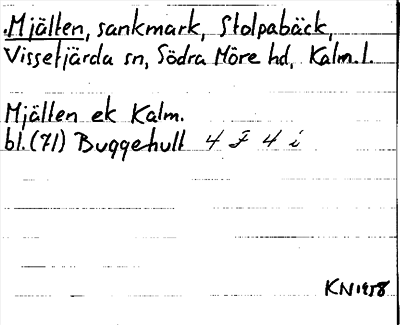 Mjälten, sankmark, Stolpabäck,
Vissefjärda sn, Södra Möre hd, Kalm. l.
Mjälten ek Kalm.
bl. (71) Buggehult 4 F 4 i
KN 1958